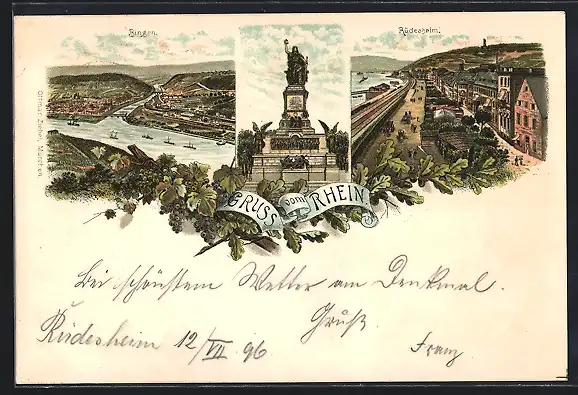 Bingen.
Rüdesheim.
Ottmar Zieher, München.
GRUSS vom RHEIN.
Bei schönstem Wetter am Denkmal.
Gruß
Rüdesheim 12/VII. 96
Franz